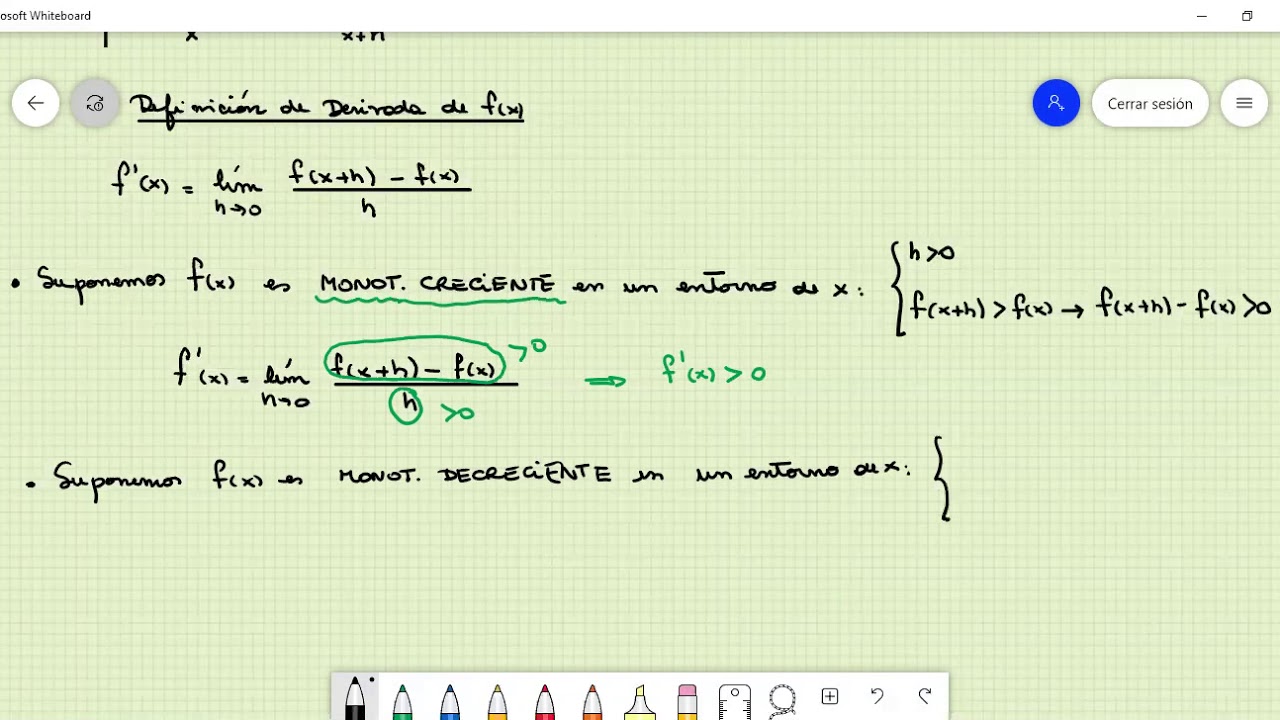 osoft Whiteboard
x x+h
Definición de Derivada de f(x)
Cerrar sesión
f'(x) = lím h→0 f(x+h) - f(x) / h
• Suponemos f(x) es MONOT. CRECIENTE en un entorno de x: { h>0
f(x+h) > f(x) → f(x+h) - f(x) >0
f'(x) = lím h→0 f(x+h) - f(x) >0 / h >0 ⇒ f'(x) > 0
• Suponemos f(x) es MONOT. DECRECIENTE en un entorno de x: {